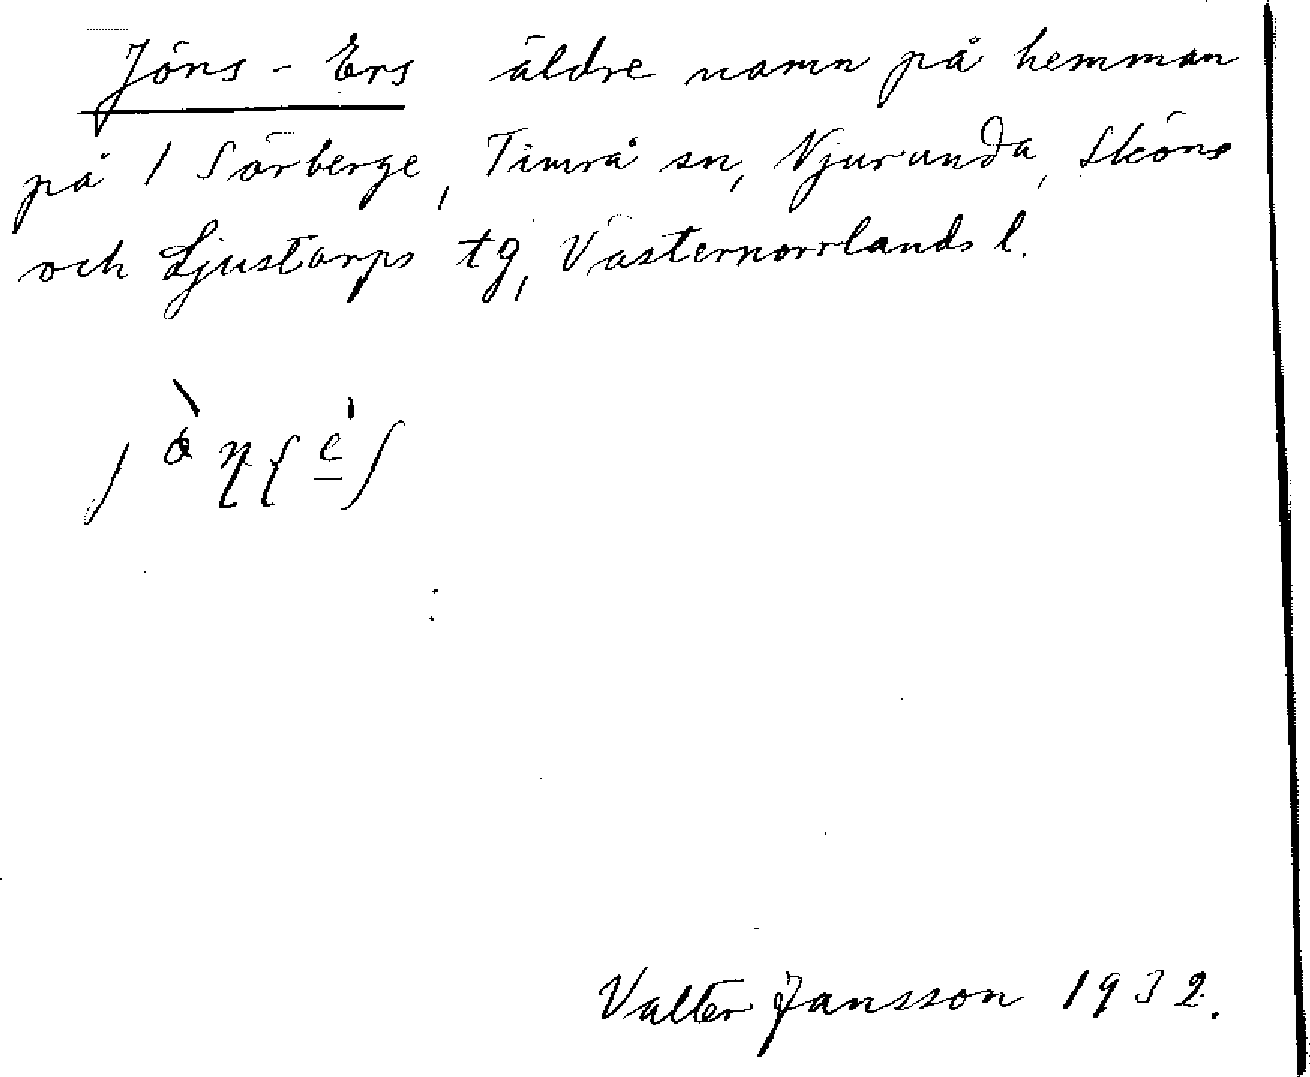 Jöns - Ers äldre namn på hemman
på 1 Sörberge, Timrå sn, Njurunda, Sköns
och Ljustorps tg, Västernorrlands l.
Valter Jansson 1932.